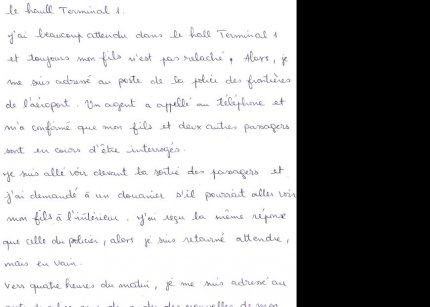 le haull Terminal 1.
y'ai beaucoup attendu dans le hall Terminal 1
et toujours mon fils n'est pas relaché, Alors, je
me suis adressé au poste de la police des frontières
de l'aéroport. Un agent a appellé au téléphone et
m'a confirmé que mon fils et deux autres passagers
sont en cours d'être interrogés.
je suis allé voir devant la sortie des passagers et
j'ai demandé à un douanier s'il pourrait aller voir
mon fils à l'intérieur. y'ai reçu la même réponse
que celle du policier, alors je suis retourné attendre,
mais en vain.
Vers quatre heures du matin, je me suis adressé au
des nouvelles de mon